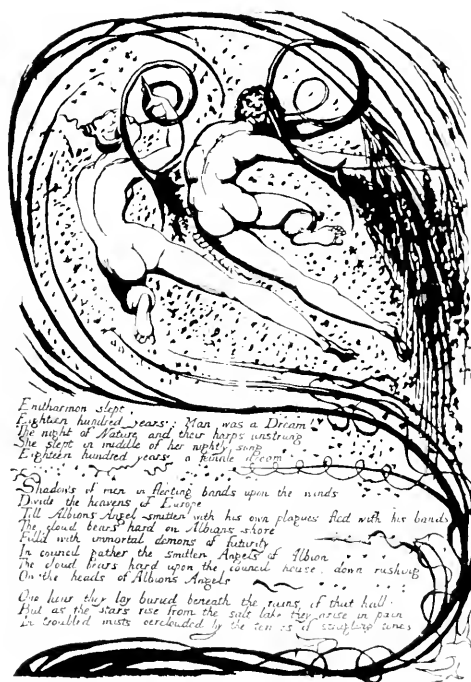 Enitharmon slept
Eighteen hundred years: Man was a Dream!
The night of Nature and their harps unstrung
She slept in middle of her nightly song
Eighteen hundred years a female dream
Shadows of men in fleeting bands upon the winds
Divide the heavens of Europe
Till Albions Angel smitten with his own plagues fled with his bands
The cloud bears hard on Albions shore
Filld with immortal demons of futurity
In council gather the smitten Angels of Albion
The cloud bears hard upon the council house, down rushing
On the heads of Albions Angels
One hour they lay buried beneath the ruins of that hall:
But as the stars rise from the salt lake they arise in pain
In troubled mists overclouded by the of strugling times